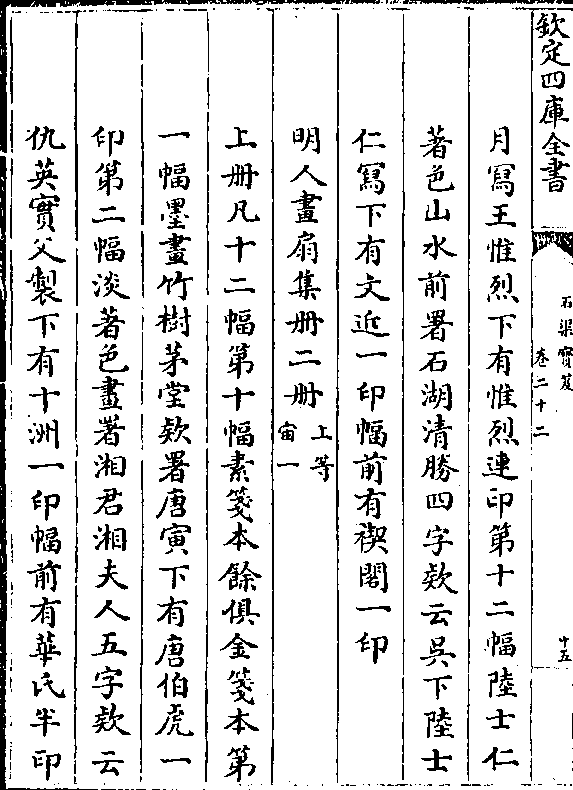 欽定四庫全書
石渠寶笈
卷二十二
十五
月寫王惟烈下有惟烈連印第十二幅陸士仁
著色山水前署石湖清勝四字欵云吳下陸士
仁寫下有文近一印幅前有禊閣一印
明人畫扇集册二册上等
宙一
上册凡十二幅第十幅素箋本餘俱金箋本第
一幅墨畫竹樹茅堂欵署唐寅下有唐伯虎一
印第二幅淡著色畫著湘君湘夫人五字欵云
仇英實父製下有十洲一印幅前有華氏半印